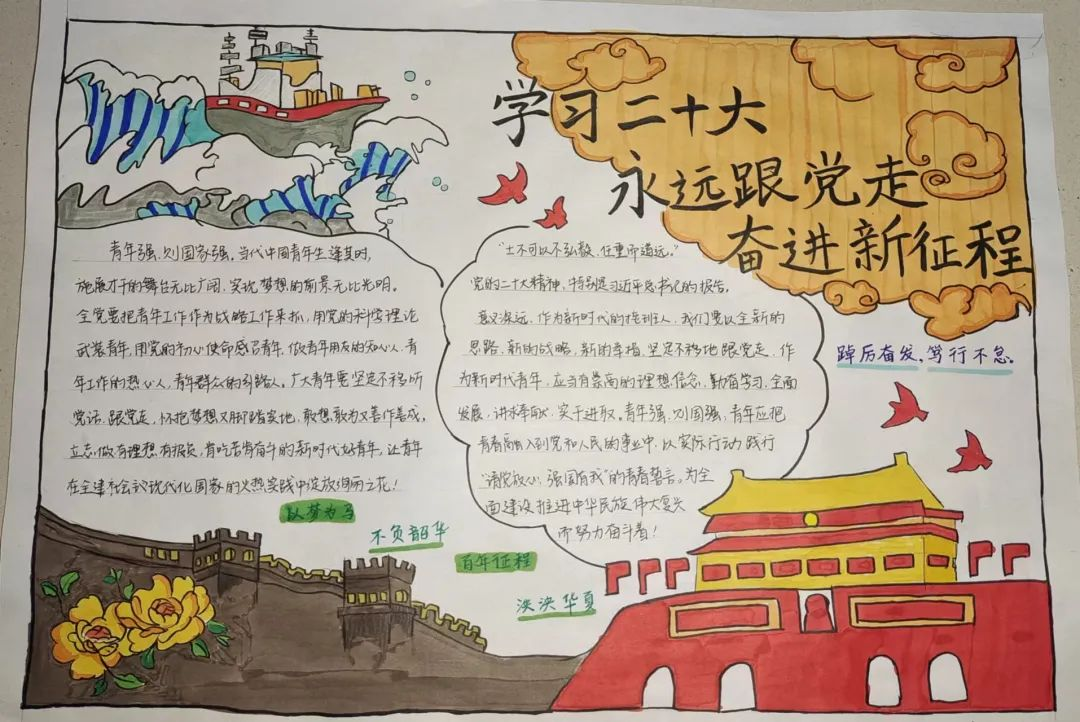 学习二十大
永远跟党走
奋进新征程
青年强,则国家强。当代中国青年生逢其时,
施展才干的舞台无比广阔,实现梦想的前景无比光明。
全党要把青年工作作为战略工作来抓,用党的科学理论
武装青年,用党的初心使命感召青年,做青年朋友的知心人,青
年工作的热心人,青年群众的引路人。广大青年要坚定不移听
党话,跟党走,怀抱梦想又脚踏实地,敢想敢为又善作善成,
立志做有理想有担当,肯吃苦肯奋斗的新时代好青年,让青年
在全建社会议现代化国家的火热实践中绽放绚丽之花!
“士不可以不弘毅,任重而道远。”
党的二十大精神,特别是习近平总书记的报告。
意义深远,作为新时代的接班人,我们要以全新的
思路,新的战略,新的举措,坚定不移地跟党走,作
为新时代青年,应当有崇高的理想信念,勤奋学习,全面
发展,讲水奉献,实干进取。青年强,则国强,青年应把
青春融入到党和人民的事业中,以实际行动践行
“请党放心,强国有我”的青春誓言。为全
面建设推进中华民族伟大复兴
而努力奋斗着!
踔厉奋发,笃行不怠。
以梦为马
不负韶华
百年征程
泱泱华夏